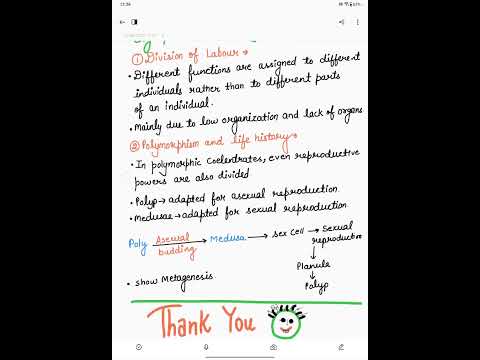 ① Division of Labour →
• Different functions are assigned to different
individuals rather than to different parts
of an individual.
• Mainly due to low organization and lack of organs
② Polymorphism and life history →
• In polymorphic Coelentrates, even reproductive
powers are also divided
• Polyp → adapted for asexual reproduction
• Medusae → adapted for sexual reproduction
Poly Asexual budding → Medusa → Sex Cell → Sexual
reproductive
↓
Planula
↓
Polyp
• Show Metagenesis
Thank You